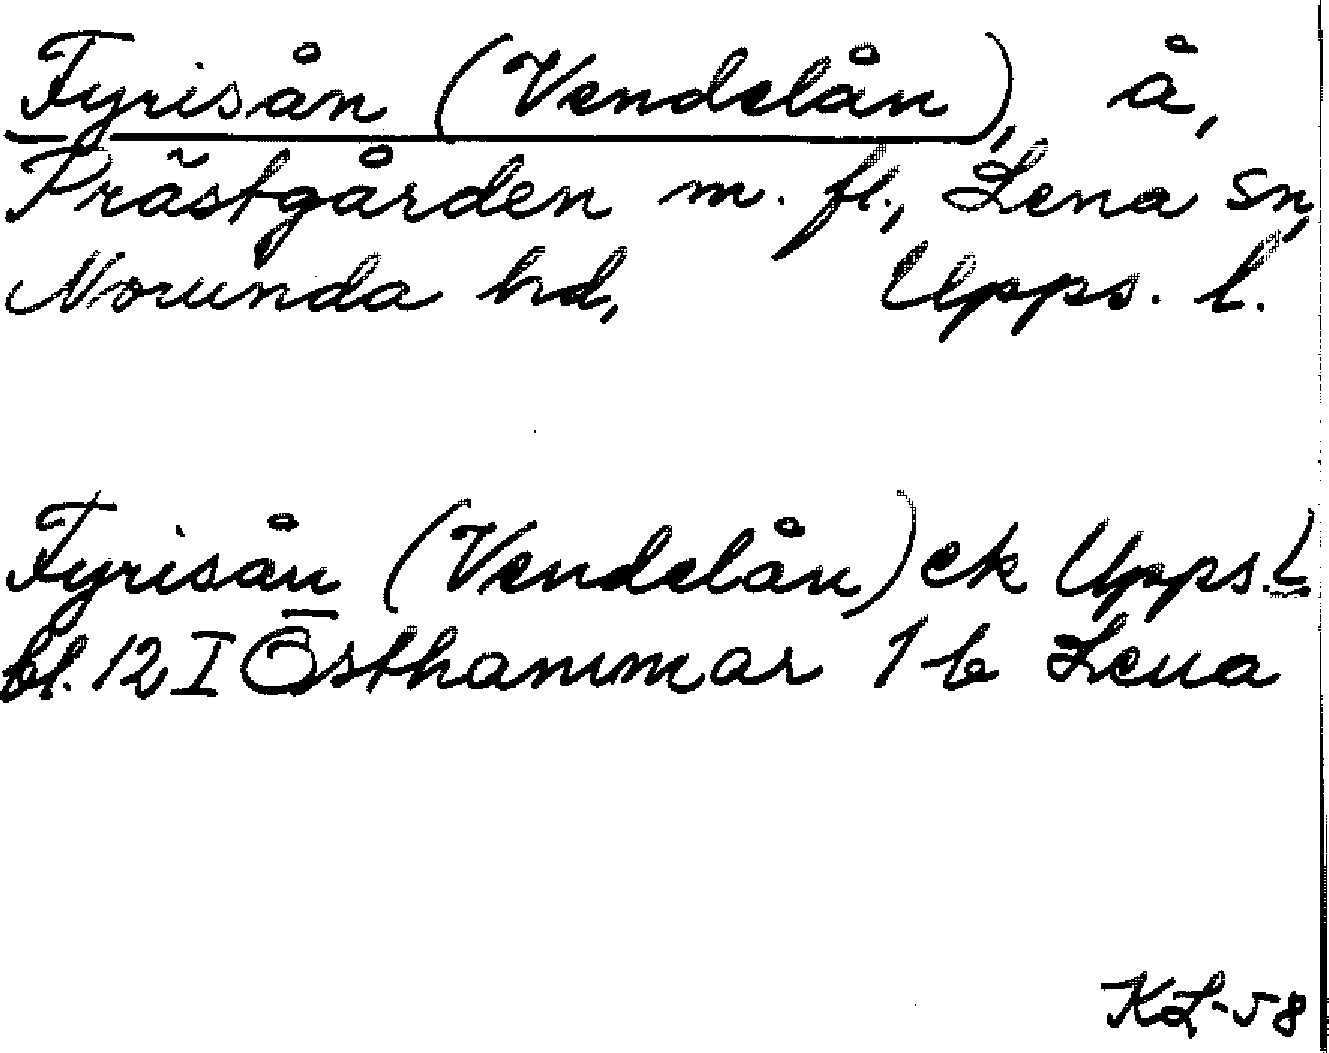 Fyrisån (Vendelån), å,
Prästgården m. fl., Lena sn,
Norunda hd, Upps. l.
Fyrisån (Vendelån) ek Upps. l
bl. 12 I Östhammar 1 b Lena
KL-58